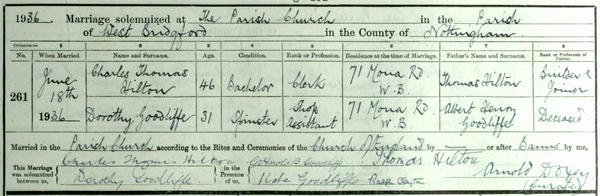 1936. Marriage solemnized at The Parish Church in the Parish
of West Bridgford in the County of Nottingham.
Columns:— 1 2 3 4 5 6 7 8
No. When Married. Name and Surname. Age. Condition. Rank or Profession. Residence at the time of Marriage. Father's Name and Surname. Rank or Profession of Father.
261 June 18th 1936 Charles Thomas Hilton 46 Bachelor Clerk 71 Mona Rd. W.B. Thomas Hilton Builder & Joiner
Dorothy Goodliffe 31 Spinster Shop Assistant 71 Mona Rd W.B. Albert Henry Goodliffe Deceased
Married in the Parish Church according to the Rites and Ceremonies of the Church of England by — or after Banns by me,
This Marriage was solemnized between us, Charles Thomas Hilton Dorothy Goodliffe in the Presence of us, Goodliffe Goodliffe Ralph Clayton Thomas Hilton Arnold (Curate)